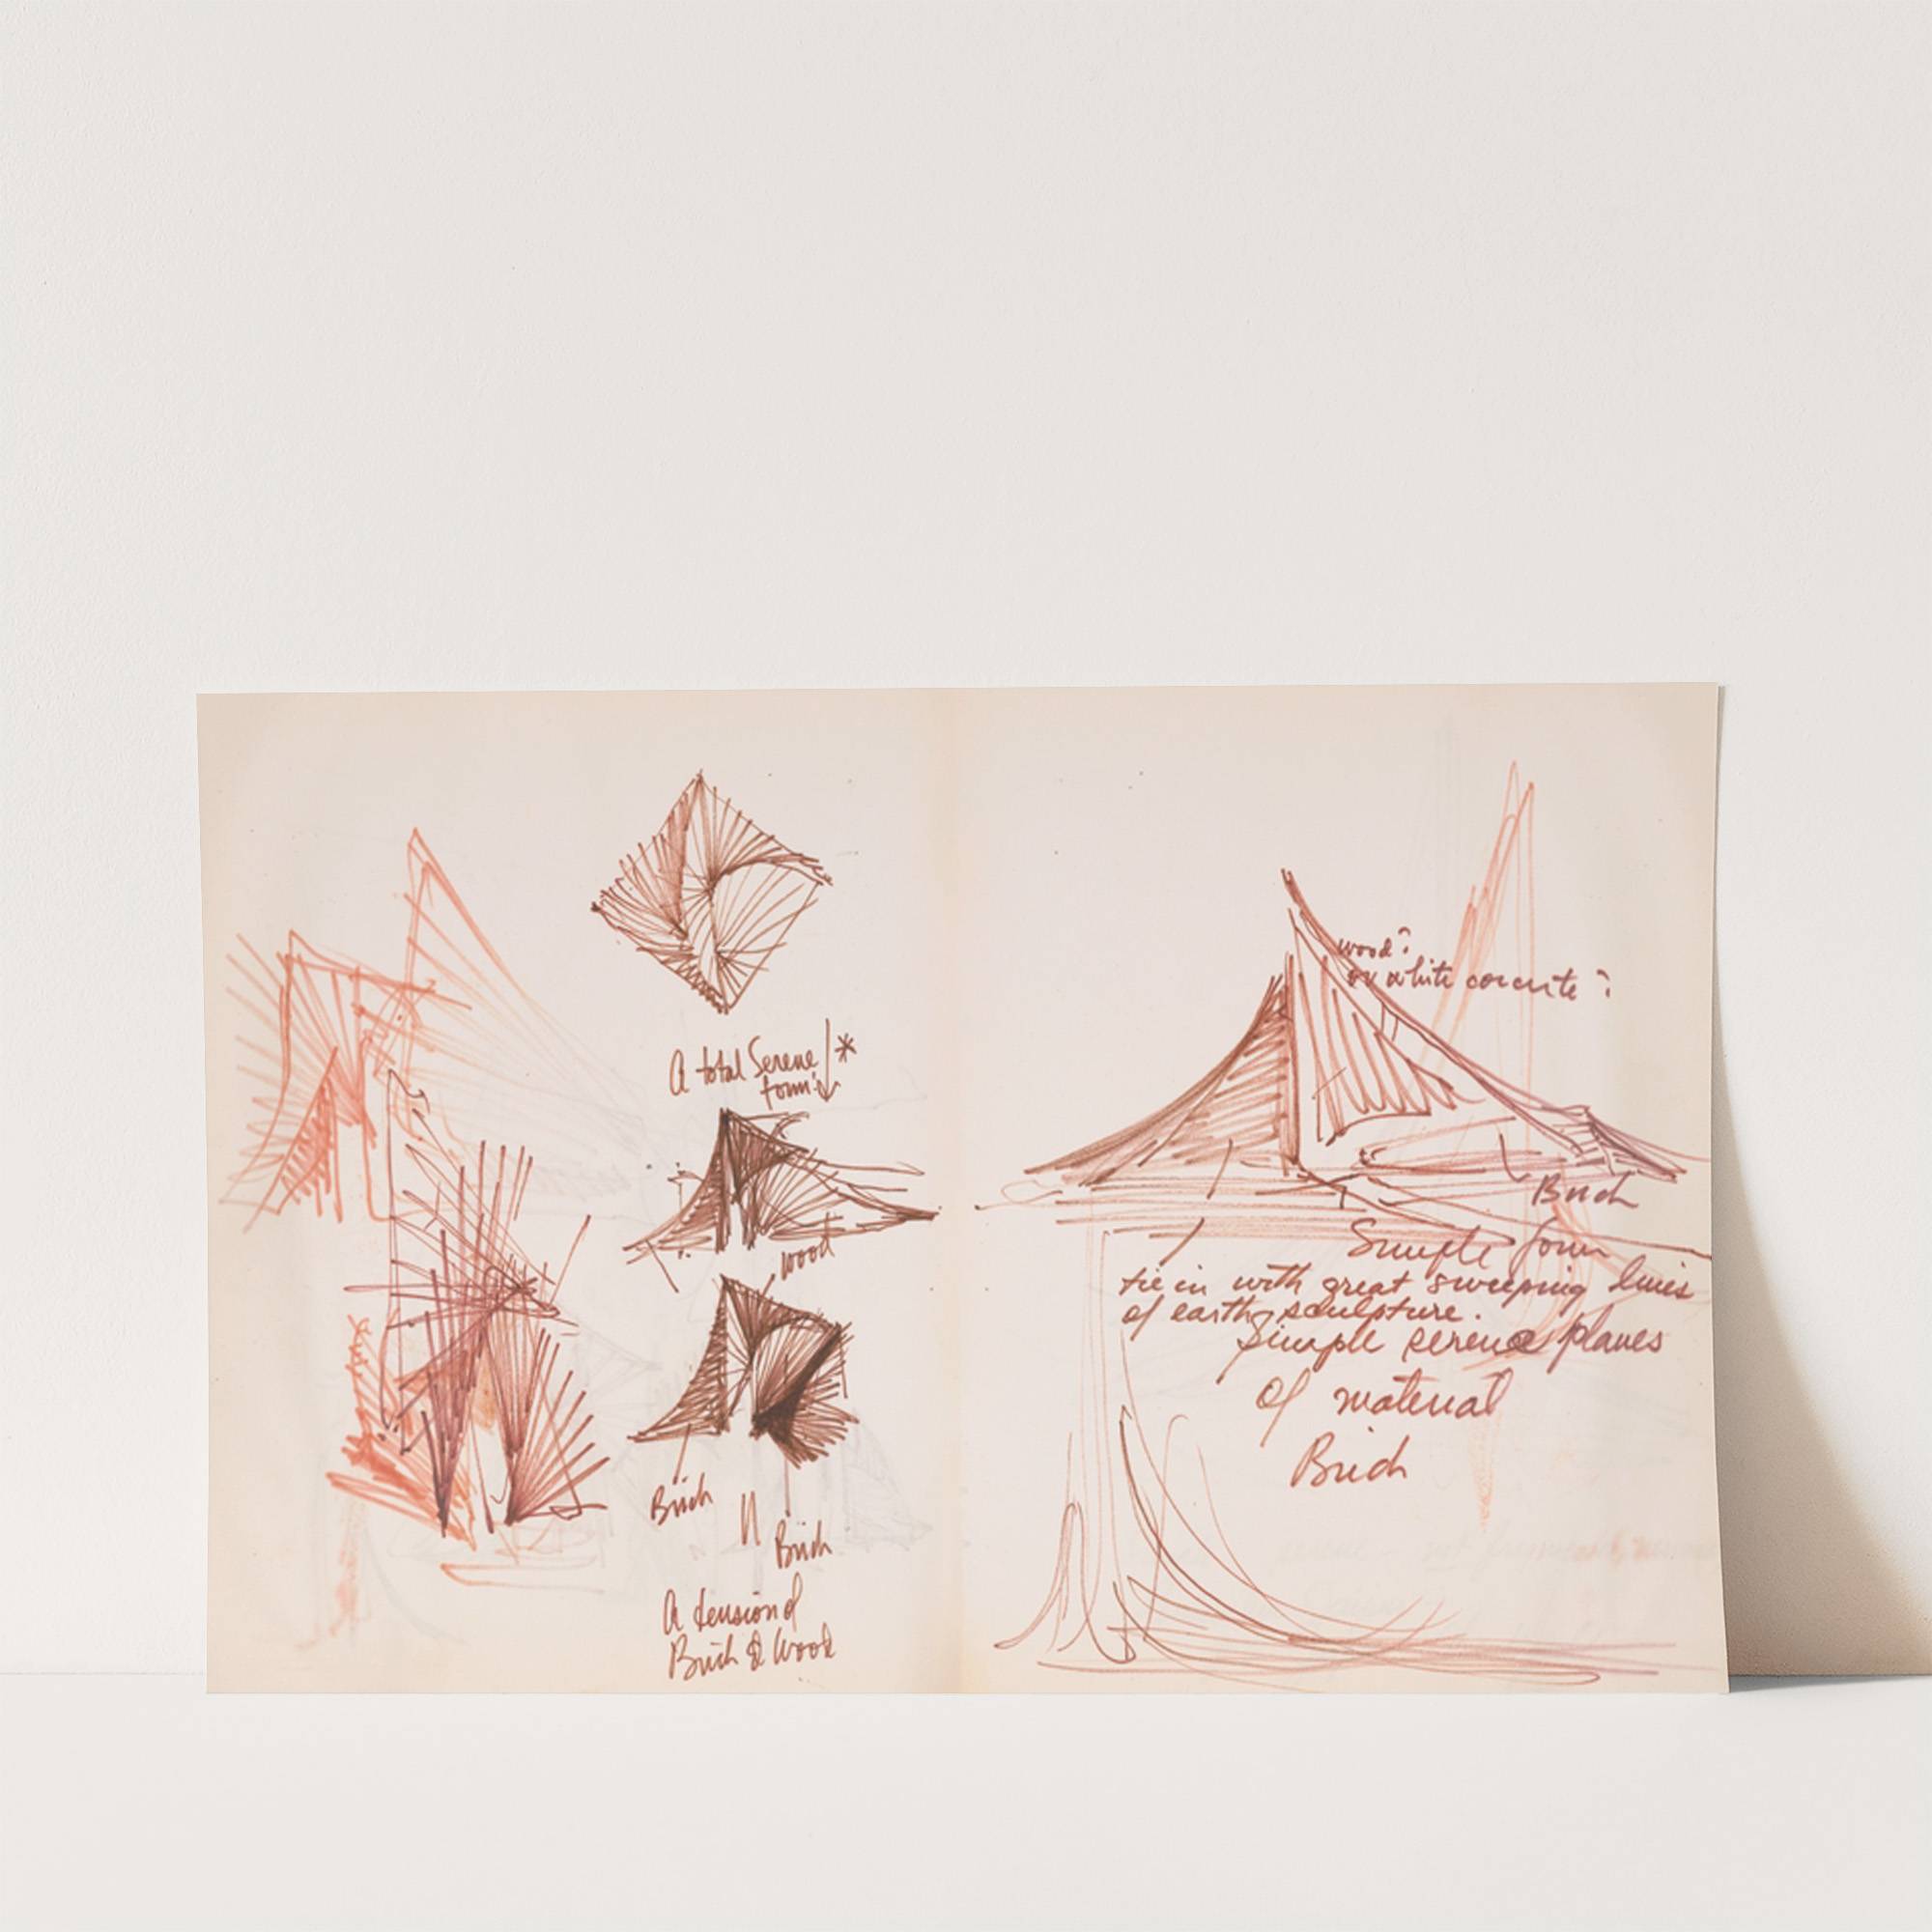 A total Serene! *
form!
wood
Brick
Brick
A tension of
Brick & Wood
wood?
or white concrete?
Brick
Simple form
tie in with great sweeping lines
of earth sculpture.
Simple serene planes
Of material
Brick